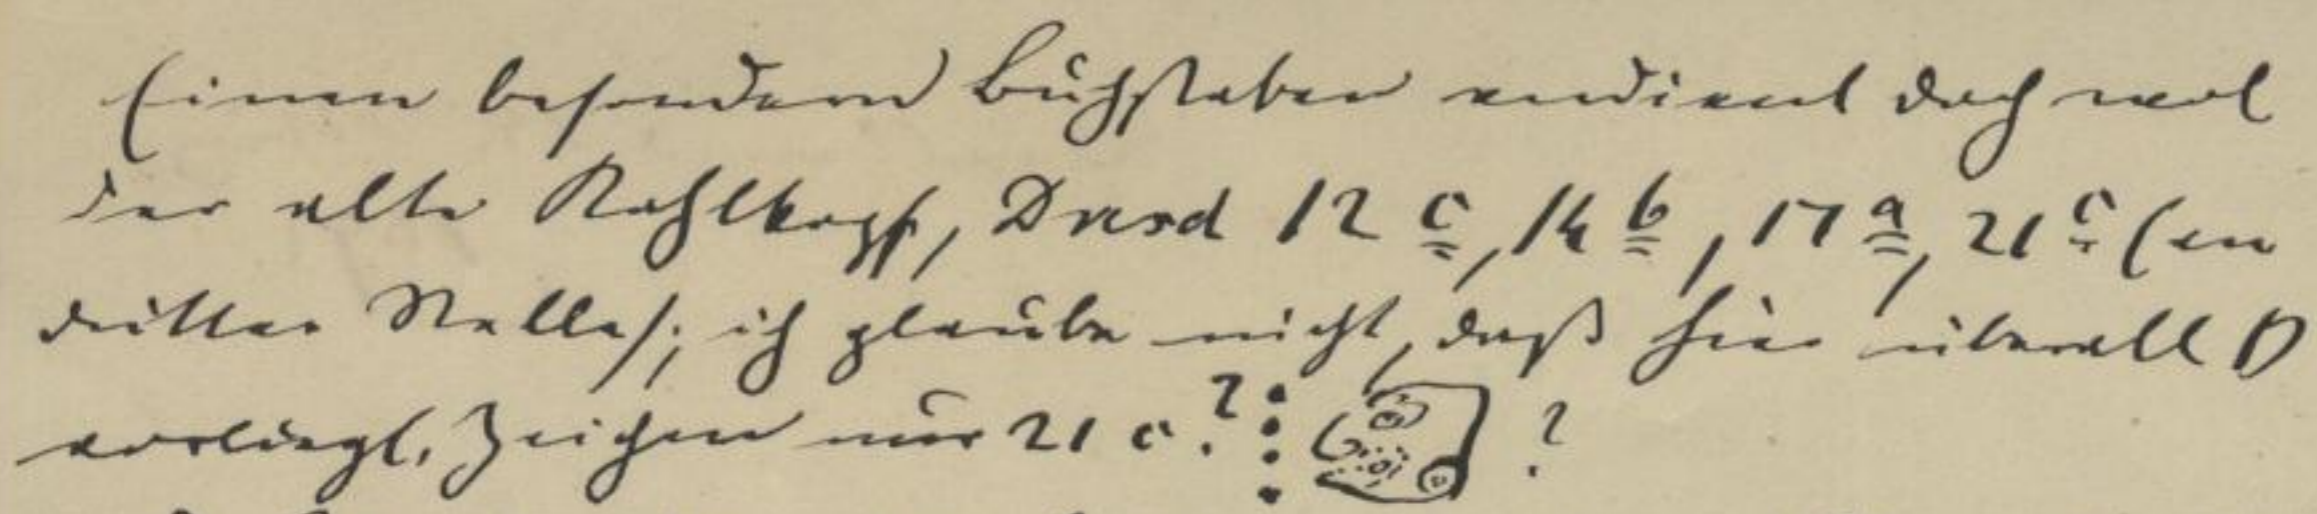 Einen besondern Buchstaben verdient doch wol
der alte Kahlkopf, Dresd 12 c, 14 b, 17 a, 21 c (an
dritter Stelle); ich glaube nicht, daß hier überall D
vorliegt. Zeichen nur 21 c. ? ?